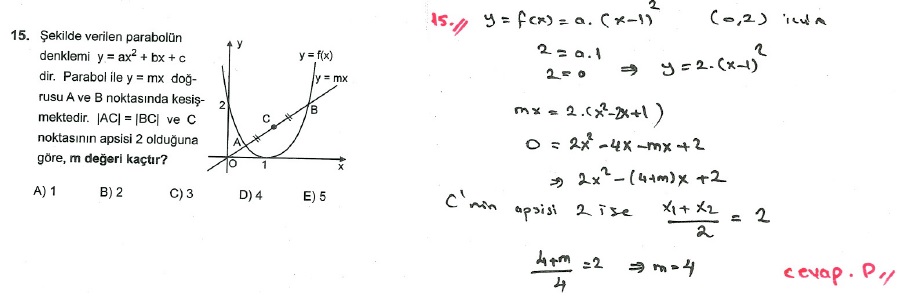 15. Şekilde verilen parabolün
denklemi y = ax² + bx + c
dir. Parabol ile y = mx doğ-
rusu A ve B noktasında kesiş-
mektedir. |AC| = |BC| ve C
noktasının apsisi 2 olduğuna
göre, m değeri kaçtır?
y
y = f(x)
y = mx
2
C
B
A
O
1
x
A) 1 B) 2 C) 3 D) 4 E) 5
15.// y = f(x) = a.(x-1)² (0,2) için
2 = a.1
2 = a ⇒ y = 2.(x-1)²
mx = 2.(x²-2x+1)
0 = 2x² - 4x - mx + 2
⇒ 2x² - (4+m)x + 2
C'nin apsisi 2 ise x₁ + x₂ / 2 = 2
4+m / 4 = 2 ⇒ m = 4
cevap. D//